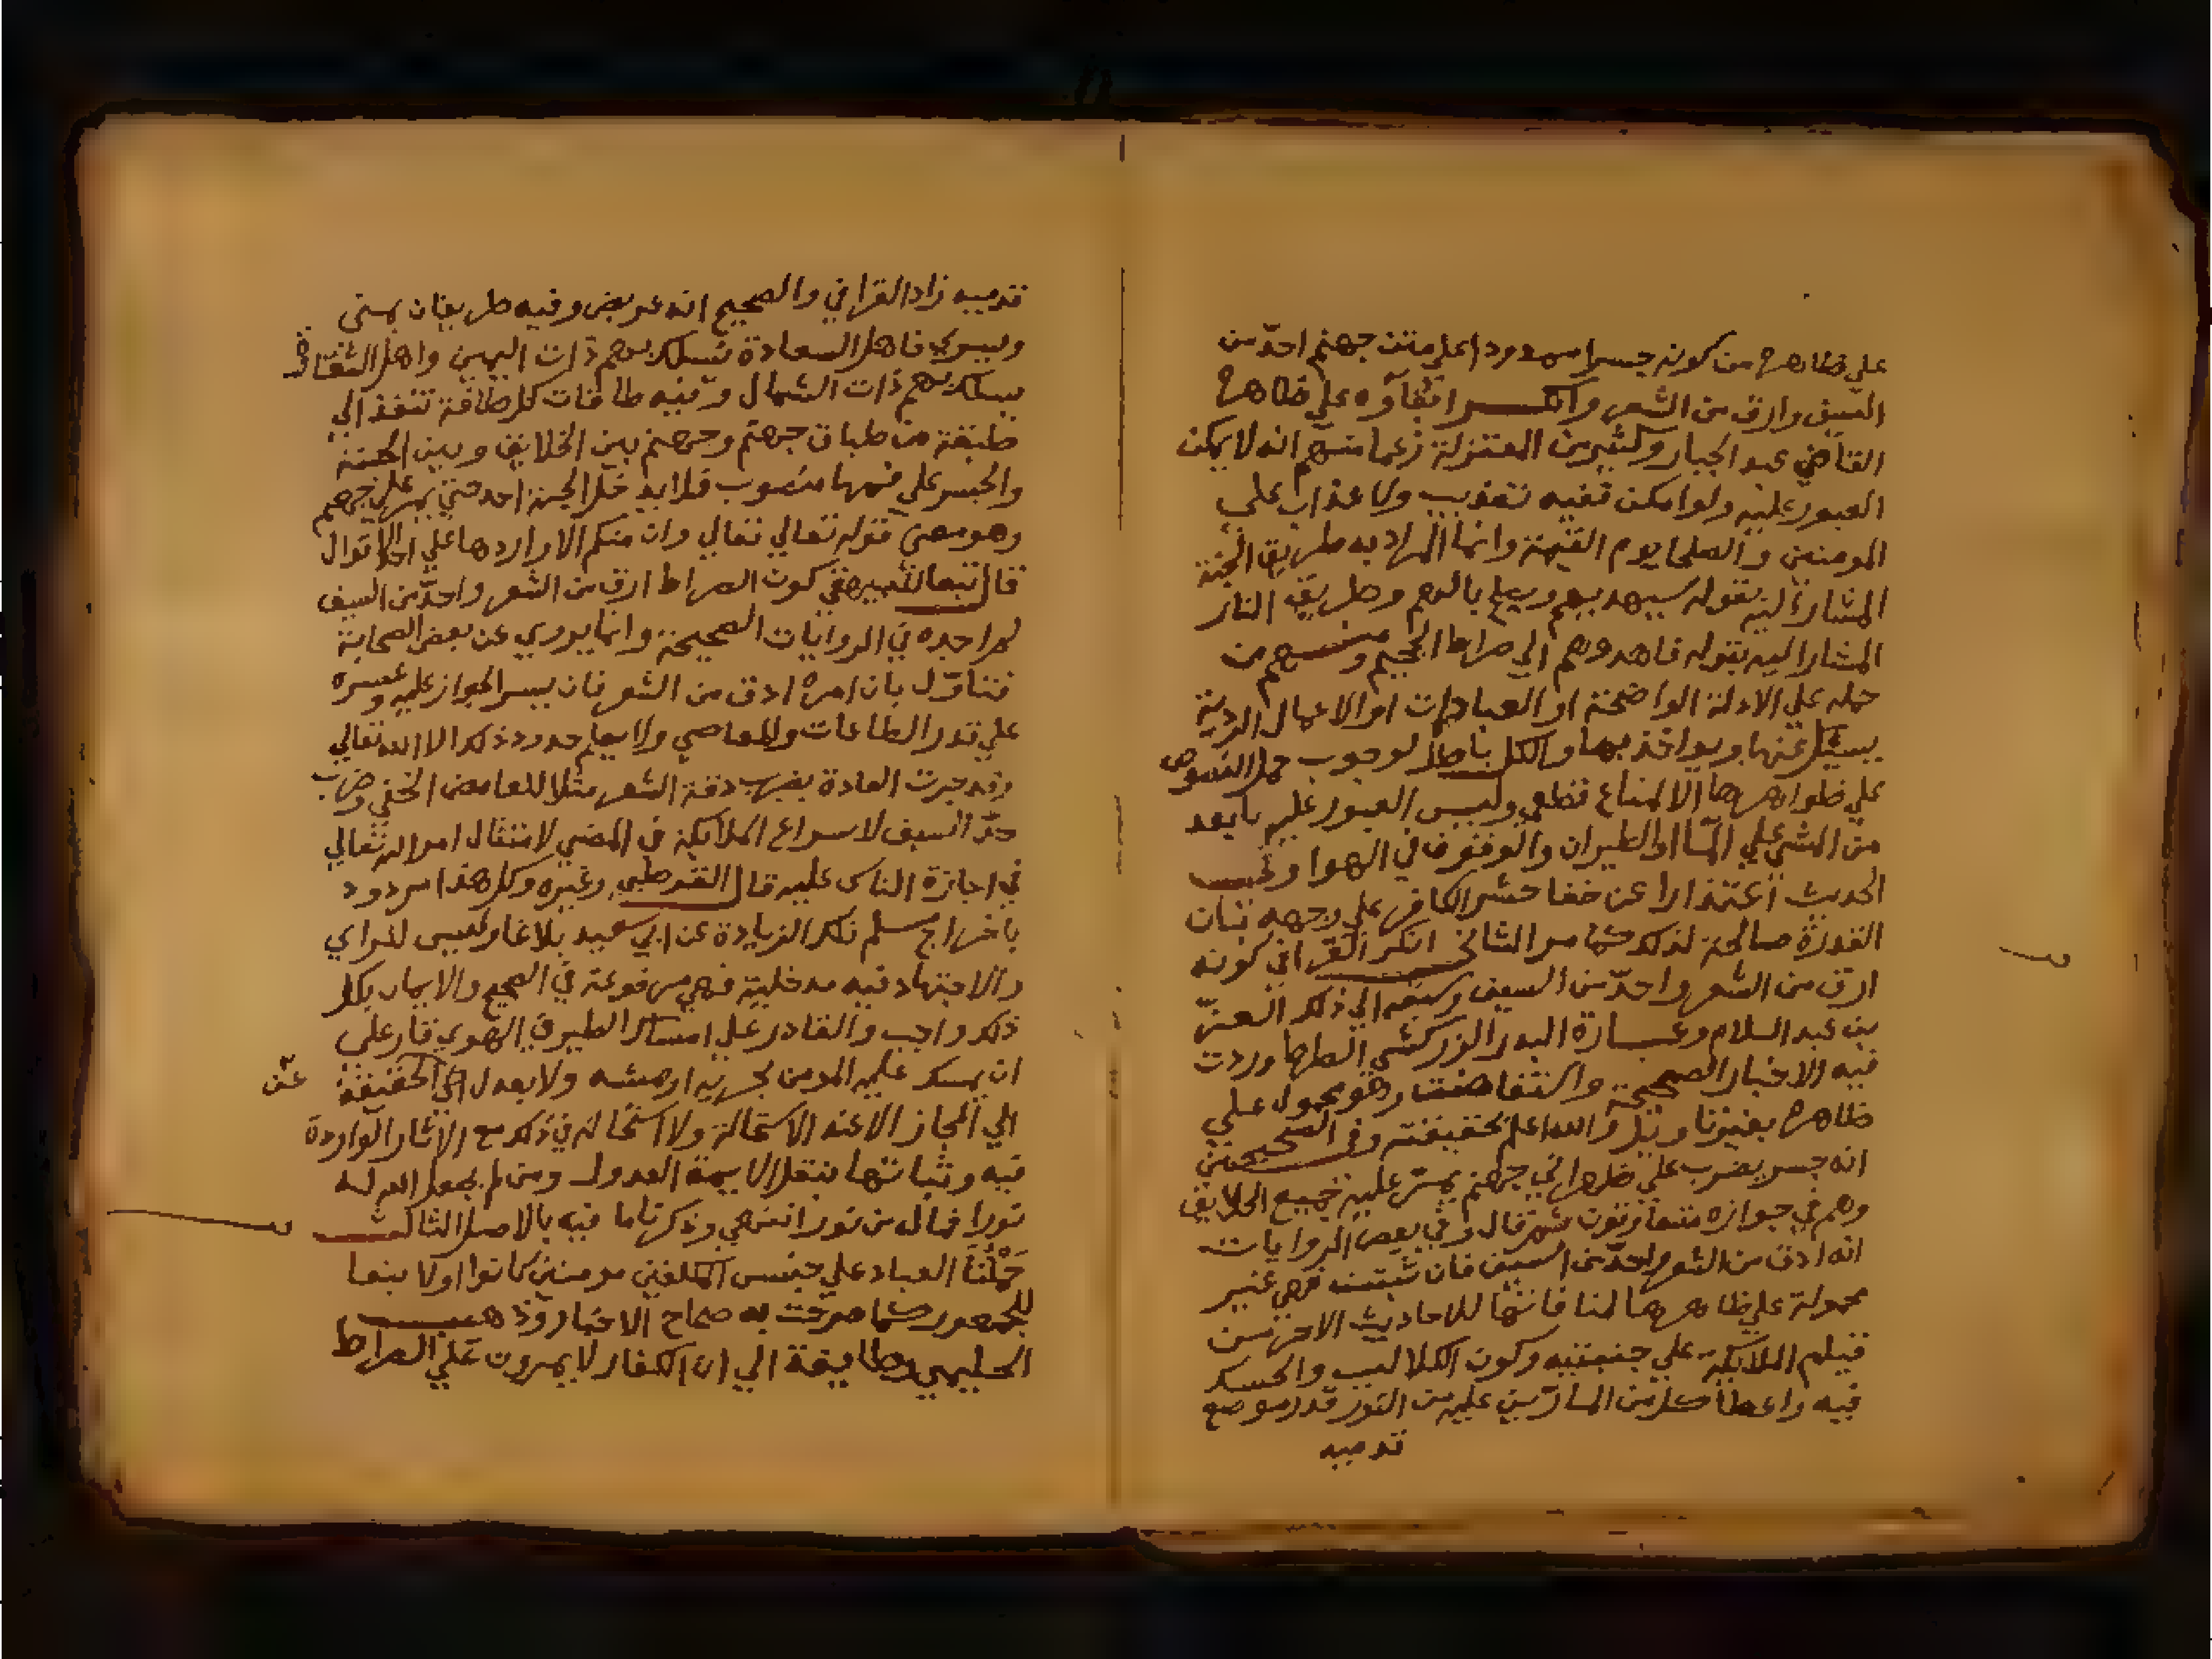 علي ظاهره من كونه جسرا ممدودا علي متن جهنم احدّ من
السيف وارق من الشعر وانكر ابقاوه علي ظاهره
القاضي عبد الجبار وكثير من المعتزلة زعما منهم انه لا يمكن
العبور عليه ولو امكن ففيه تعذيب ولا عذاب علي
المومنين والصلحا يوم القيمة وانما المراد به طريق الجنة
المشار اليه بقوله سيهديهم ويصلح بالهم وطريق النار
المشار اليه بقوله فاهدوهم الي صراط الجحيم ومنهم من
حمله علي الادلة الواضحة او العبادات او الاعمال الردية
يسيل عنها ويواخذ بها والكل باطل لوجوب حمل النصوص
علي ظواهرها الا لمناع قطعي وليس العبور عليه بابعد
من المشي علي الما او الطيران والوقوف في الهوا وفي
الحديث اعتذارا عن خفا حشر الكافر علي وجهه بان
القدرة صالحة لذلك كما مر الثاني انكر القرافي كونه
ارق من الشعر واحدّ من السيف وسبقه الي ذلك العزّ
بن عبد السلام وعبارة البدر الزركشي الصراط وردت
فيه الاخبار الصحيحة واستفاضت وهو محمول علي
ظاهره بغير تاويل والله اعلم بحقيقته وفي الصحيحين
انه جسر يضرب علي ظهراني جهنم يمرّ عليه جميع الخلايق
وهم في جوازه متفاوتون ثم قال وفي بعض الروايات
انه ادق من الشعر واحدّ من السيف فان ثبتت فهي غير
محمولة علي ظاهرها لمنافاتها للاحاديث الاخر من
قيام الملايكة علي جنبتيه وكون الكلاليب والحسك
فيه واعطا كل من المارّين عليه من النور قدر موضع
قدميه
قدميه زاد القرافي والصحيح انه عريض وفيه طريقان يمني
ويسري فاهل السعادة يسلك بهم ذات اليمين واهل الشقاوة
يسلك بهم ذات الشمال وفيه طاقات كل طاقة تنفذ الي
طبقة من طباق جهنم وجهنم بين الخلايق وبين الجنة
والجسر علي متنها منصوب فلا يدخل الجنة احد حتي يمر علي جهنم
وهو معني قوله تعالي تعالي وان منكم الا واردها علي احد الاقوال
قال تبعا للبيهقي كون الصراط ارق من الشعر واحدّ من السيف
لم اجده في الروايات الصحيحة وانما يروي عن بعض الصحابة
فتناوّل بان امره ادق من الشعر فان يسر الجواز عليه وعسره
علي قدر الطاعات والمعاصي ولا يعلم حدود ذلك الا الله تعالي
وقد جرت العادة بضرب دقة الشعر مثلا للغامض الخفي وضرب
حدّ السيف لاسراع الملايكة في المضي لامتثال امر الله تعالي
في اجازة الناس عليه قال القرطبي وغيره وكل هذا مردود
باخراج مسلم تلك الزيادة عن ابي سعيد بلاغا وليس للراي
والاجتهاد فيه مدخلية فهي مرفوعة في الصحيح والايمان بكل
ذلك واجب والقادر علي امساك الطير في الهوي قادر علي
ان يمسك عليه المومن يجريه او يمشيه ولا يعدل الي الحقيقة عن
الي المجاز الا عند الاستحالة ولا استحالة في ذلك مع الاثار الواردة
فيه وثباتها بنقل الايمة العدول ومن لم يجعل الله له
نورا فماله من نور انتهي وذكرنا ما فيه بالاصل الثالث
حَمْلُنَا العباد علي جنس المكلفين مومنين كانوا اولا تبعا
للجمهور كما صرحت به صحاح الاخبار وذهب
الحليمي وطايفة الي ان الكفار لا يمرون علي الصراط